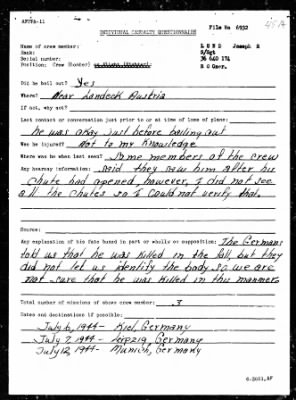 AFPPA-11
INDIVIDUAL CASUALTY QUESTIONNAIRE
File No 6932
Name of crew member: LUND Joseph S
Rank: S/Sgt
Serial number: 36 640 174
Position: Crew (Bomber)
Did he bail out? Yes
Where? Near Landeck Austria
If not, why not?
Last contact or conversation just prior to or at time of loss of plane:
he was okay just before bailing out
Was he injured? Not to my knowledge
Where was he when last seen? Some members of the crew
Any hearsay information: said they saw him after his
chute had opened, however, I did not see
all the chutes so I could not verify that.
Source:
Any explanation of his fate based in part or wholly on supposition: The Germans
told us that he was killed in the fall, but they
did not let us identify the body so we are
not sure that he was killed in this manner.
Total number of missions of above crew member: 3
Dates and destinations if possible:
July 6, 1944 - Kiel, Germany
July 7, 1944 - Leipzig, Germany
July 12, 1944 - Munich, Germany